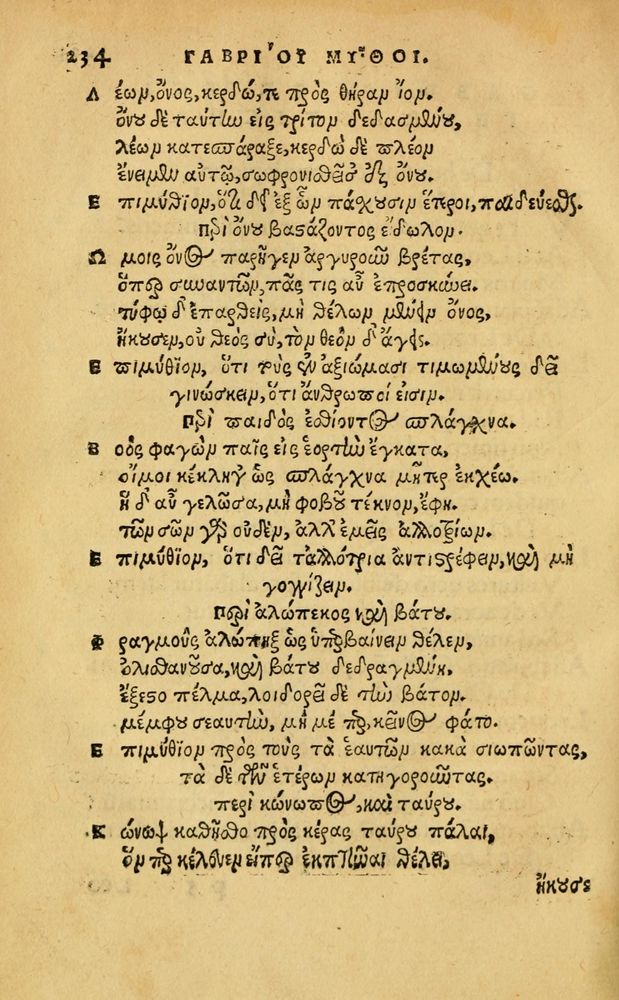 234 ΓΑΒΡΙΟΥ ΜΥΘΟΙ.
Λέων, ὄνος, κερδώ, τε πρὸς θήραν ἴον.
ὄνου δὲ ταύτην εἰς τρίτον δεδασμένου,
λέων κατεσπάραξε, κερδὼ δὲ πλέον
ἔνειμεν αὐτῷ, σωφρονισθεῖσ᾽ ἐξ ὄνου.
Ἐπιμύθιον, ὅτι δεῖ ἐξ ὧν πάσχουσιν ἕτεροι, παιδεύεσθαι.
Περὶ ὄνου βαστάζοντος εἴδωλον.
Ὤμοις ὄνος παρῆγεν ἀργυροῦν βρέτας,
ὅπερ συναντῶν, πᾶς τις αὖ ἐπροσκύνει.
τύφῳ δ᾽ ἐπαρθεὶς, μὴ θέλων μένειν ὄνος,
ἤκουσεν, οὐ θεὸς σὺ, τὸν θεὸν δ᾽ ἄγεις.
Ἐπιμύθιον, ὅτι τοὺς ἐν ἀξιώμασι τιμωμένους δεῖ
γινώσκειν, ὅτι ἄνθρωποί εἰσιν.
Περὶ παιδὸς ἐσθίοντος σπλάγχνα.
Βοὸς φαγὼν παῖς εἰς ἑορτὴν ἔγκατα,
οἴμοι κέκληγ᾽ ὡς σπλάγχνα μῆτερ ἐκχέω.
ἡ δ᾽ αὖ γελῶσα, μὴ φοβοῦ τέκνον, ἔφη.
τῶν σῶν γὰρ οὐδὲν, ἀλλ᾽ ἐμεῖς ἀλλοτρίων.
Ἐπιμύθιον, ὅτι δεῖ τἀλλότρια ἀντιστρέφειν, καὶ μὴ
γογγίζειν.
Περὶ ἀλώπεκος καὶ βάτου.
Φραγμοὺς ἀλώπηξ ὡς ὑπερβαίνειν θέλεν,
ὀλισθανοῦσα, καὶ βάτου δεδραγμένη,
ἔξεσο πέλμα, λοιδορεῖ δὲ τὴν βάτον.
μέμφου σεαυτὴν, μὴ μέ περ, κεῖνος φάτο.
Ἐπιμύθιον πρὸς τοὺς τὰ ἑαυτῶν κακὰ σιωπῶντας,
τὰ δὲ τῶν ἑτέρων κατηγοροῦντας.
περὶ κώνωπος, καὶ ταύρου.
Κώνωψ καθῆστο πρὸς κέρας ταύρου πάλαι,
ὅν περ κέλευεν εἴπερ ἐκπτῆναι θέλει,
ἤκουσε